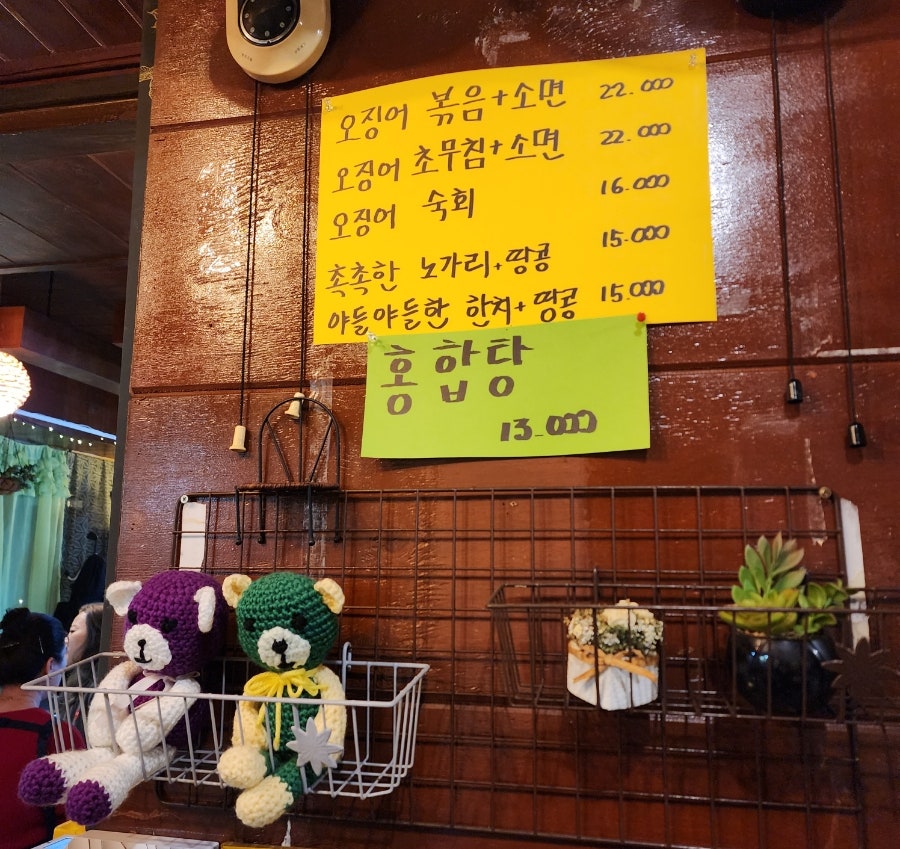 오징어 볶음+소면 22.000
오징어 초무침+소면 22.000
오징어 숙회 16.000
촉촉한 노가리+땅콩 15.000
야들야들한 한치+땅콩 15.000
홍합탕
13.000